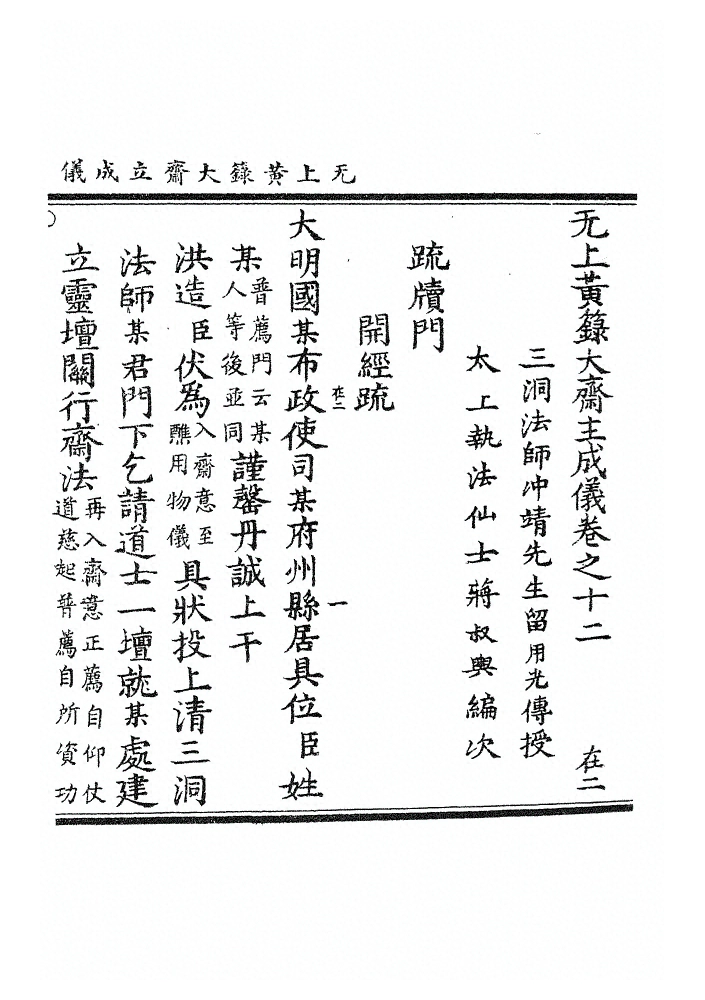 无上黃籙大齋立成儀
无上黃籙大齋立成儀卷之十二 在二
三洞法師冲靖先生留用光傳授
太上執法仙士蔣叔輿編次
疏牘門
開經疏
在二 一
大明國某布政使司某府州縣居具位臣姓
某普薦門云某人等後並同謹罄丹誠上干
洪造臣伏爲入齋意至醮用物儀具狀投上清三洞
法師某君門下乞請道士一壇就某處建
立靈壇關行齋法再入齋意正薦自仰仗道慈起普薦自所資功